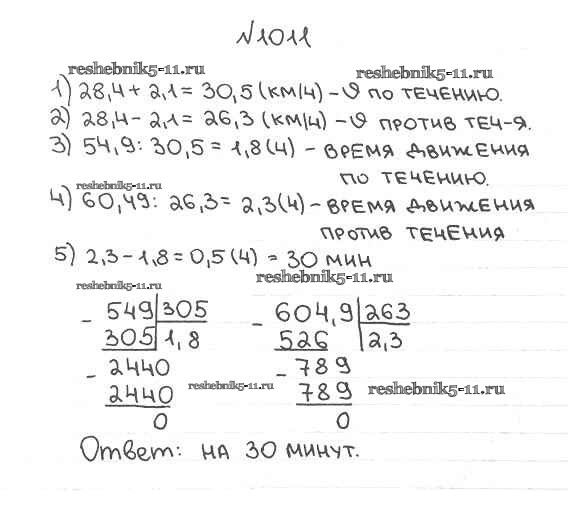 №1011
reshebnik5-11.ru reshebnik5-11.ru
1) 28,4 + 2,1 = 30,5 (км/ч) – υ по течению.
2) 28,4 – 2,1 = 26,3 (км/ч) – υ против теч-я.
3) 54,9 : 30,5 = 1,8 (ч) – время движения
по течению.
reshebnik5-11.ru
4) 60,49 : 26,3 = 2,3 (ч) – время движения
против течения
5) 2,3 – 1,8 = 0,5 (ч) = 30 мин
reshebnik5-11.ru reshebnik5-11.ru
– 549 | 305 – 604,9 | 263
305 | 1,8 526 | 2,3
– 2440 – 789
2440 reshebnik5-11.ru 789 reshebnik5-11.ru
0 0
Ответ: на 30 минут.